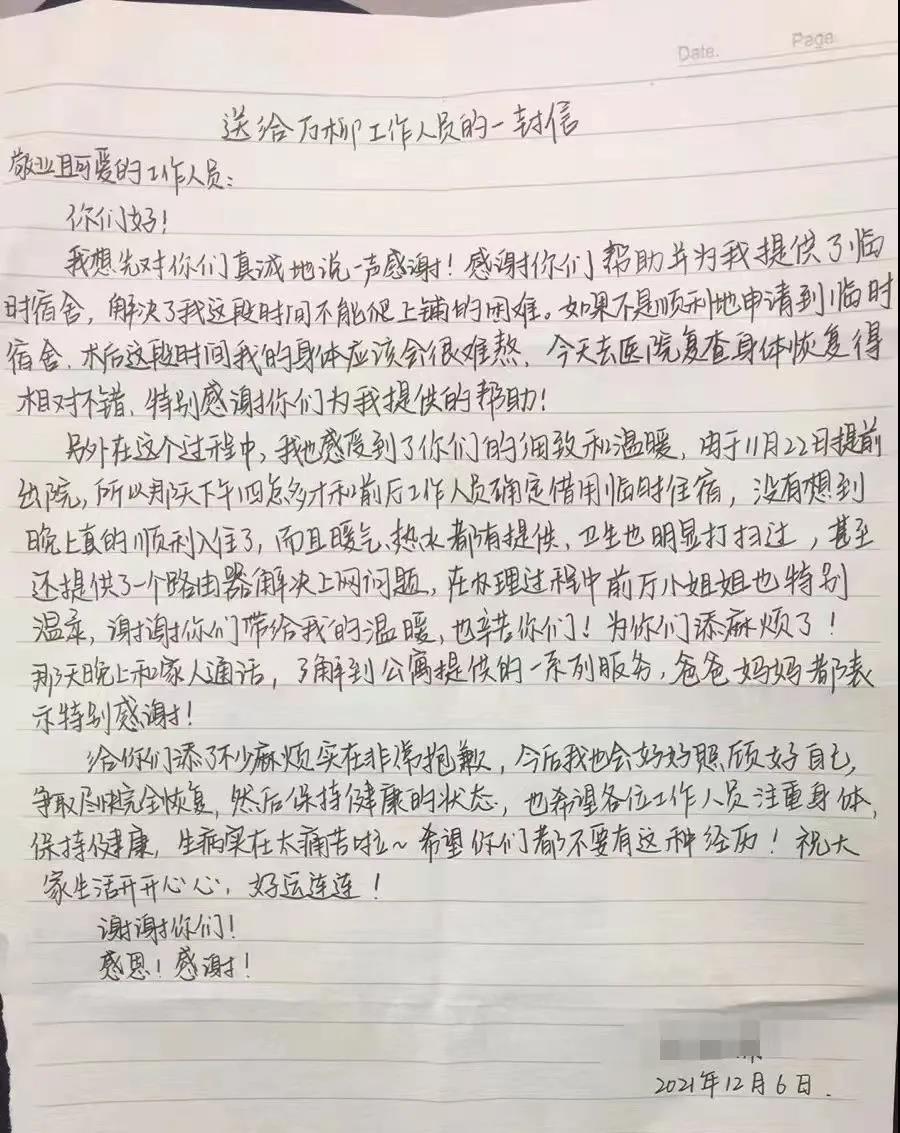 Date.
Page
送给万柳工作人员的一封信
敬业且可爱的工作人员：
你们好！
我想先对你们真诚地说一声感谢！感谢你们帮助并为我提供了临
时宿舍，解决了我这段时间不能爬上铺的困难。如果不是顺利地申请到临时
宿舍、术后这段时间我的身体应该会很难熬、今天去医院复查身体恢复得
相对不错、特别感谢你们为我提供的帮助！
另外在这个过程中，我也感受到了你们的细致和温暖，由于11月22日提前
出院，所以那天下午四点多才和前厅工作人员确定借用临时住宿，没有想到
晚上真的顺利入住了，而且暖气、热水都有提供、卫生也明显打扫过，甚至
还提供了一个路由器解决上网问题，在办理过程中前厅小姐姐也特别
温柔，谢谢你们带给我的温暖，也辛苦你们！为你们添麻烦了！
那天晚上和家人通话，了解到公寓提供的一系列服务，爸爸妈妈都表
示特别感谢！
给你们添了不少麻烦实在非常抱歉，今后我也会好好照顾好自己，
争取尽快完全恢复，然后保持健康的状态，也希望各位工作人员注重身体，
保持健康，生病实在太痛苦啦～希望你们都不要有这种经历！祝大
家生活开开心心，好运连连！
谢谢你们！
感恩！感谢！
2021年12月6日.